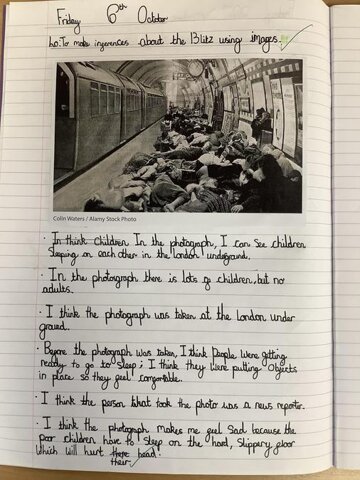 Friday 6th October
Lo: To make inferences about the Blitz using images.
Colin Waters / Alamy Stock Photo
· In think Children In the photograph, I can see children
sleeping on each other in the london underground.
· In the photograph there is lots of children, but no
adults.
· I think the photograph was taken at the London under
ground.
· Before the photograph was taken, I think people were getting
ready to go to sleep; I think they were putting objects
in place so they feel comfortable.
· I think the person that took the photo was a news reporter.
· I think the photograph makes me feel sad because the
poor children have to sleep on the hard, slippery floor
which will hurt there head.
their